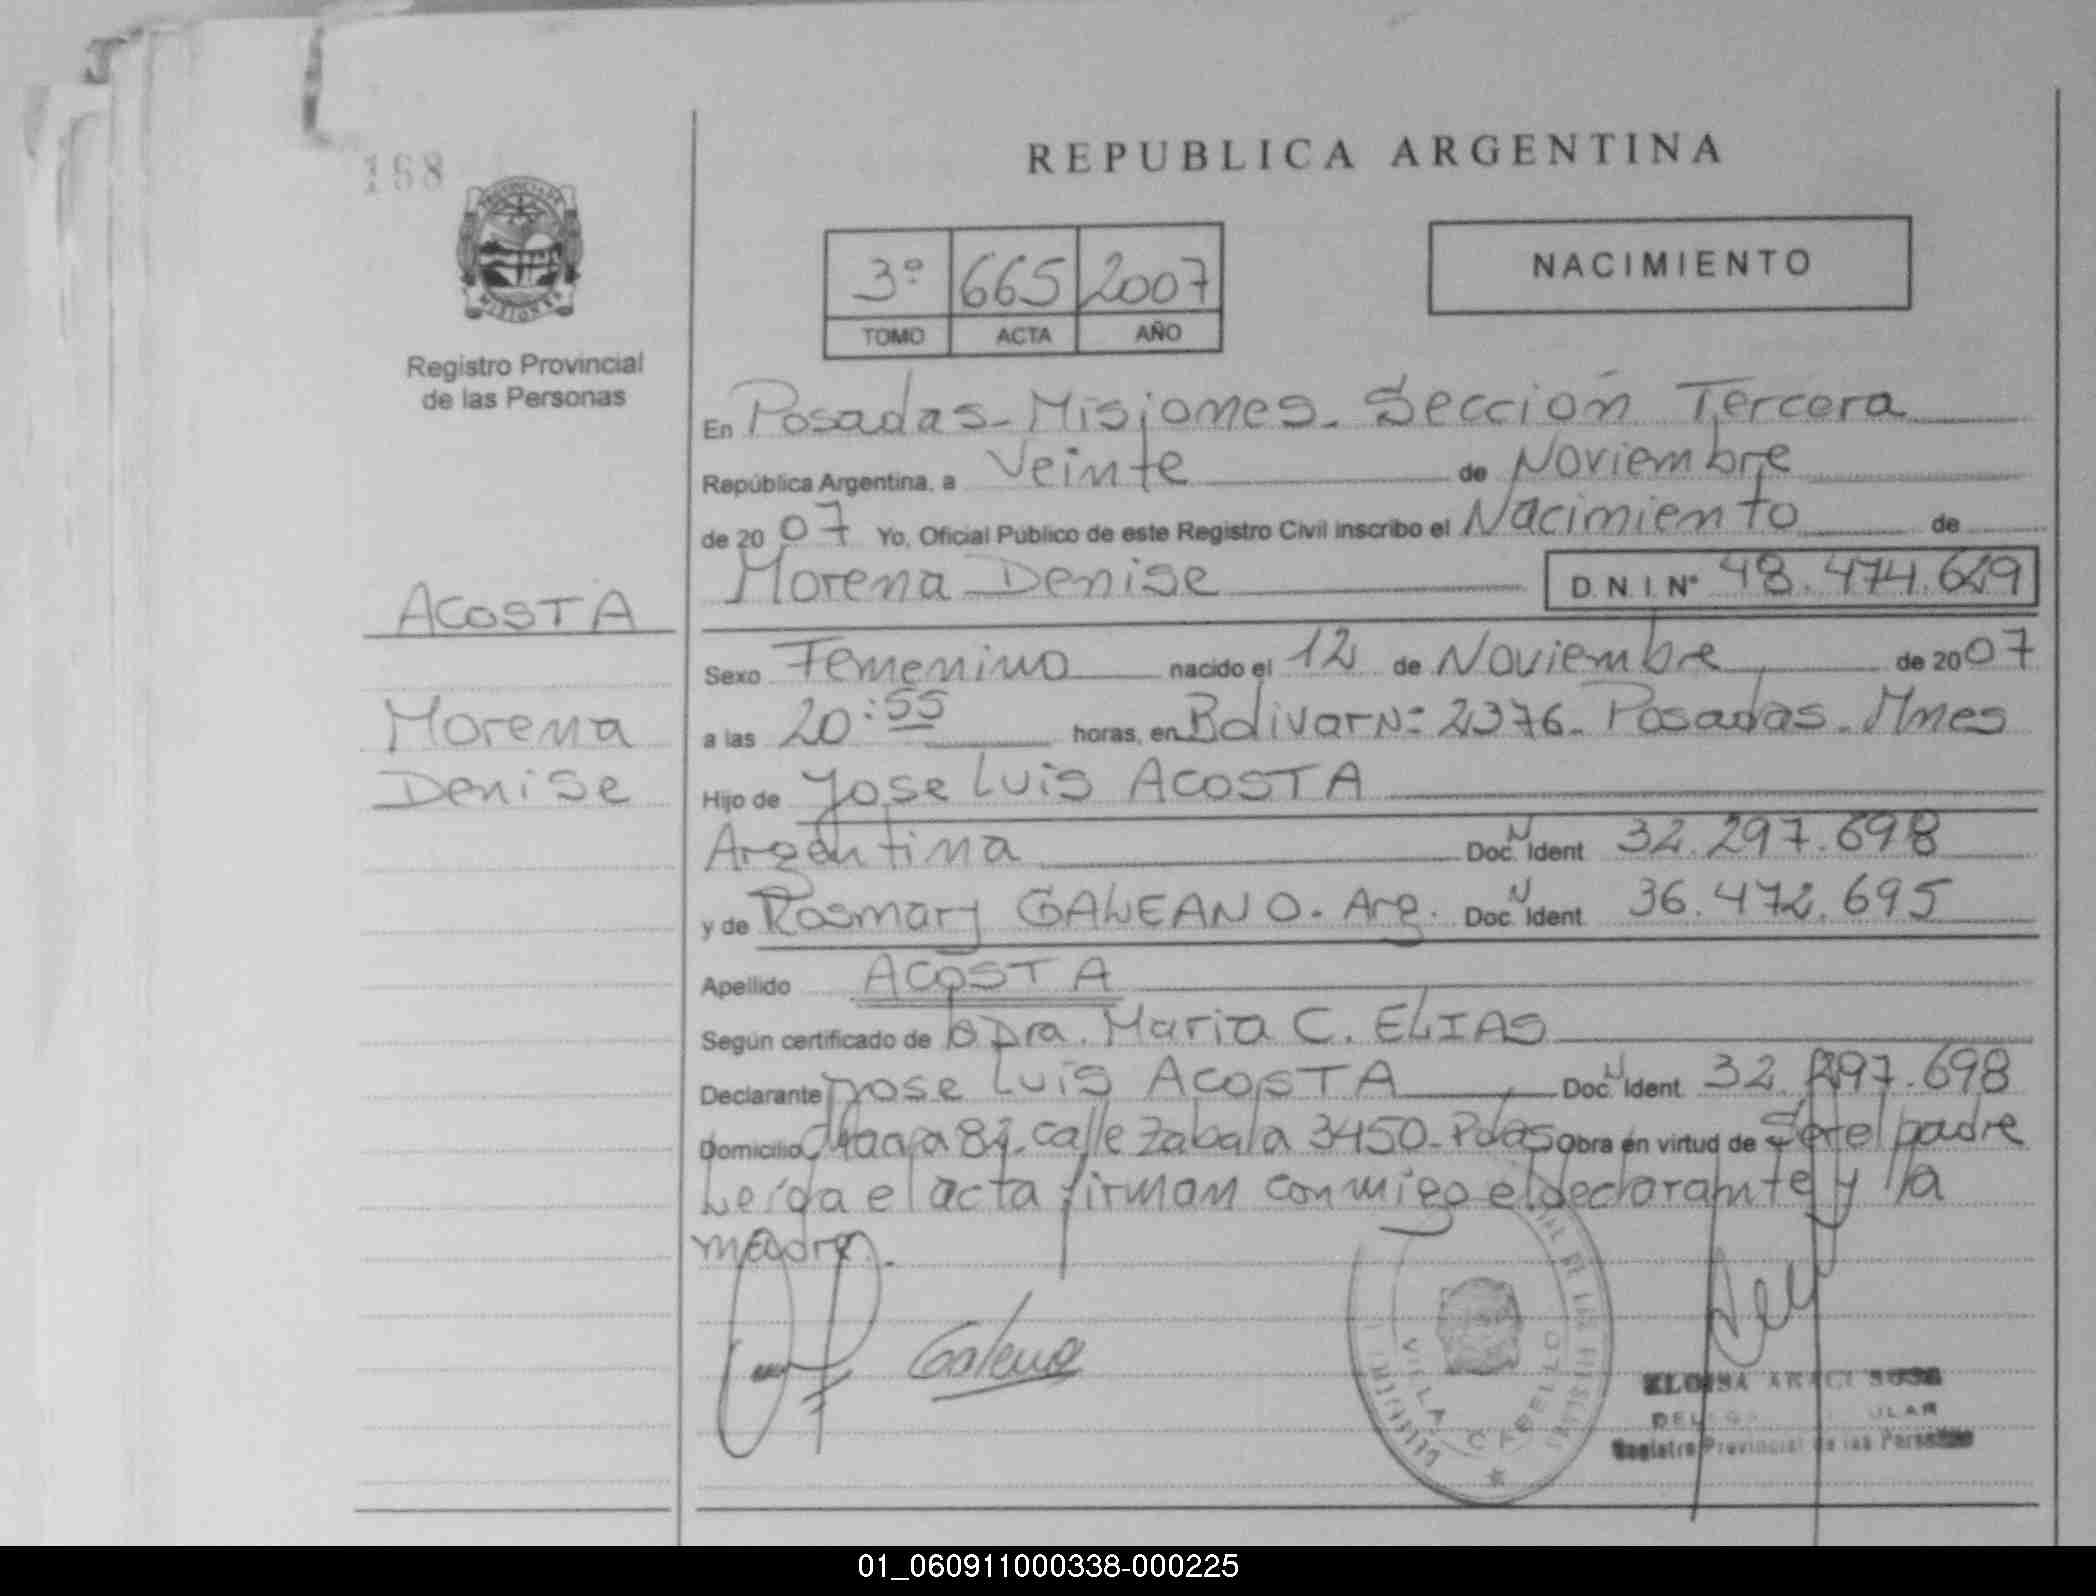 168
REPUBLICA ARGENTINA
PROVINCIA DE
MISIONES
Registro Provincial
de las Personas
3º 665 2007
TOMO ACTA AÑO
NACIMIENTO
En Posadas - Misiones. Sección Tercera
República Argentina, a Veinte de Noviembre
de 2007 Yo, Oficial Público de este Registro Civil inscribo el Nacimiento de
Morena Denise D.N.I. Nº 48.474.629
ACOSTA
Sexo Femenino nacido el 12 de Noviembre de 2007
Morena
Denise
a las 20:55 horas, en Bolivar Nº 2376. Posadas. Mnes
Hijo de Jose Luis ACOSTA
Argentina Doc. N Ident 32.297.698
y de Rosmary GALEANO. Arg. Doc. N Ident 36.472.695
Apellido ACOSTA
Según certificado de la Dra. Maria C. ELIAS
Declarante Jose Luis ACOSTA Doc. N Ident 32.297.698
Domicilio Chacra 82. calle Zabala 3450 - Pdas Obra en virtud de Ser el padre
Leída el acta firman conmigo el declarante y la
madre.
Galeano
VILLA CABELLO
ELOISA ARACI SOSA
Registro Provincial de las Personas
01_060911000338-000225